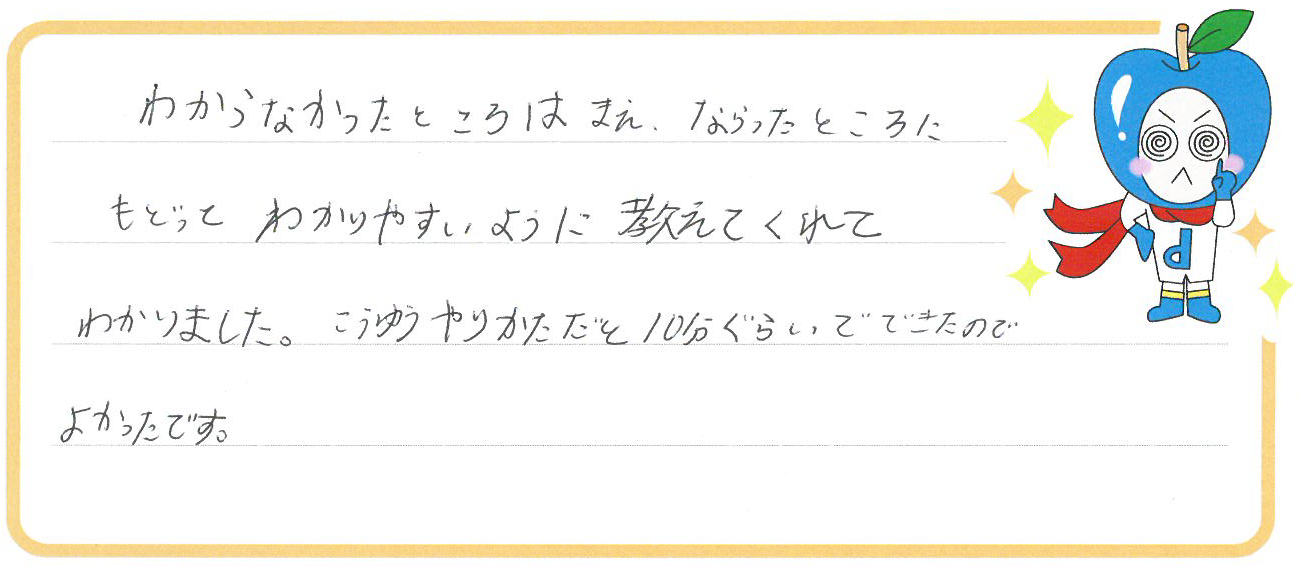 わからなかったところは まえ、ならったところに
もどって わかりやすいように 教えてくれて
わかりました。こうゆうやりかただと10分ぐらいでできたので
よかったです。
d